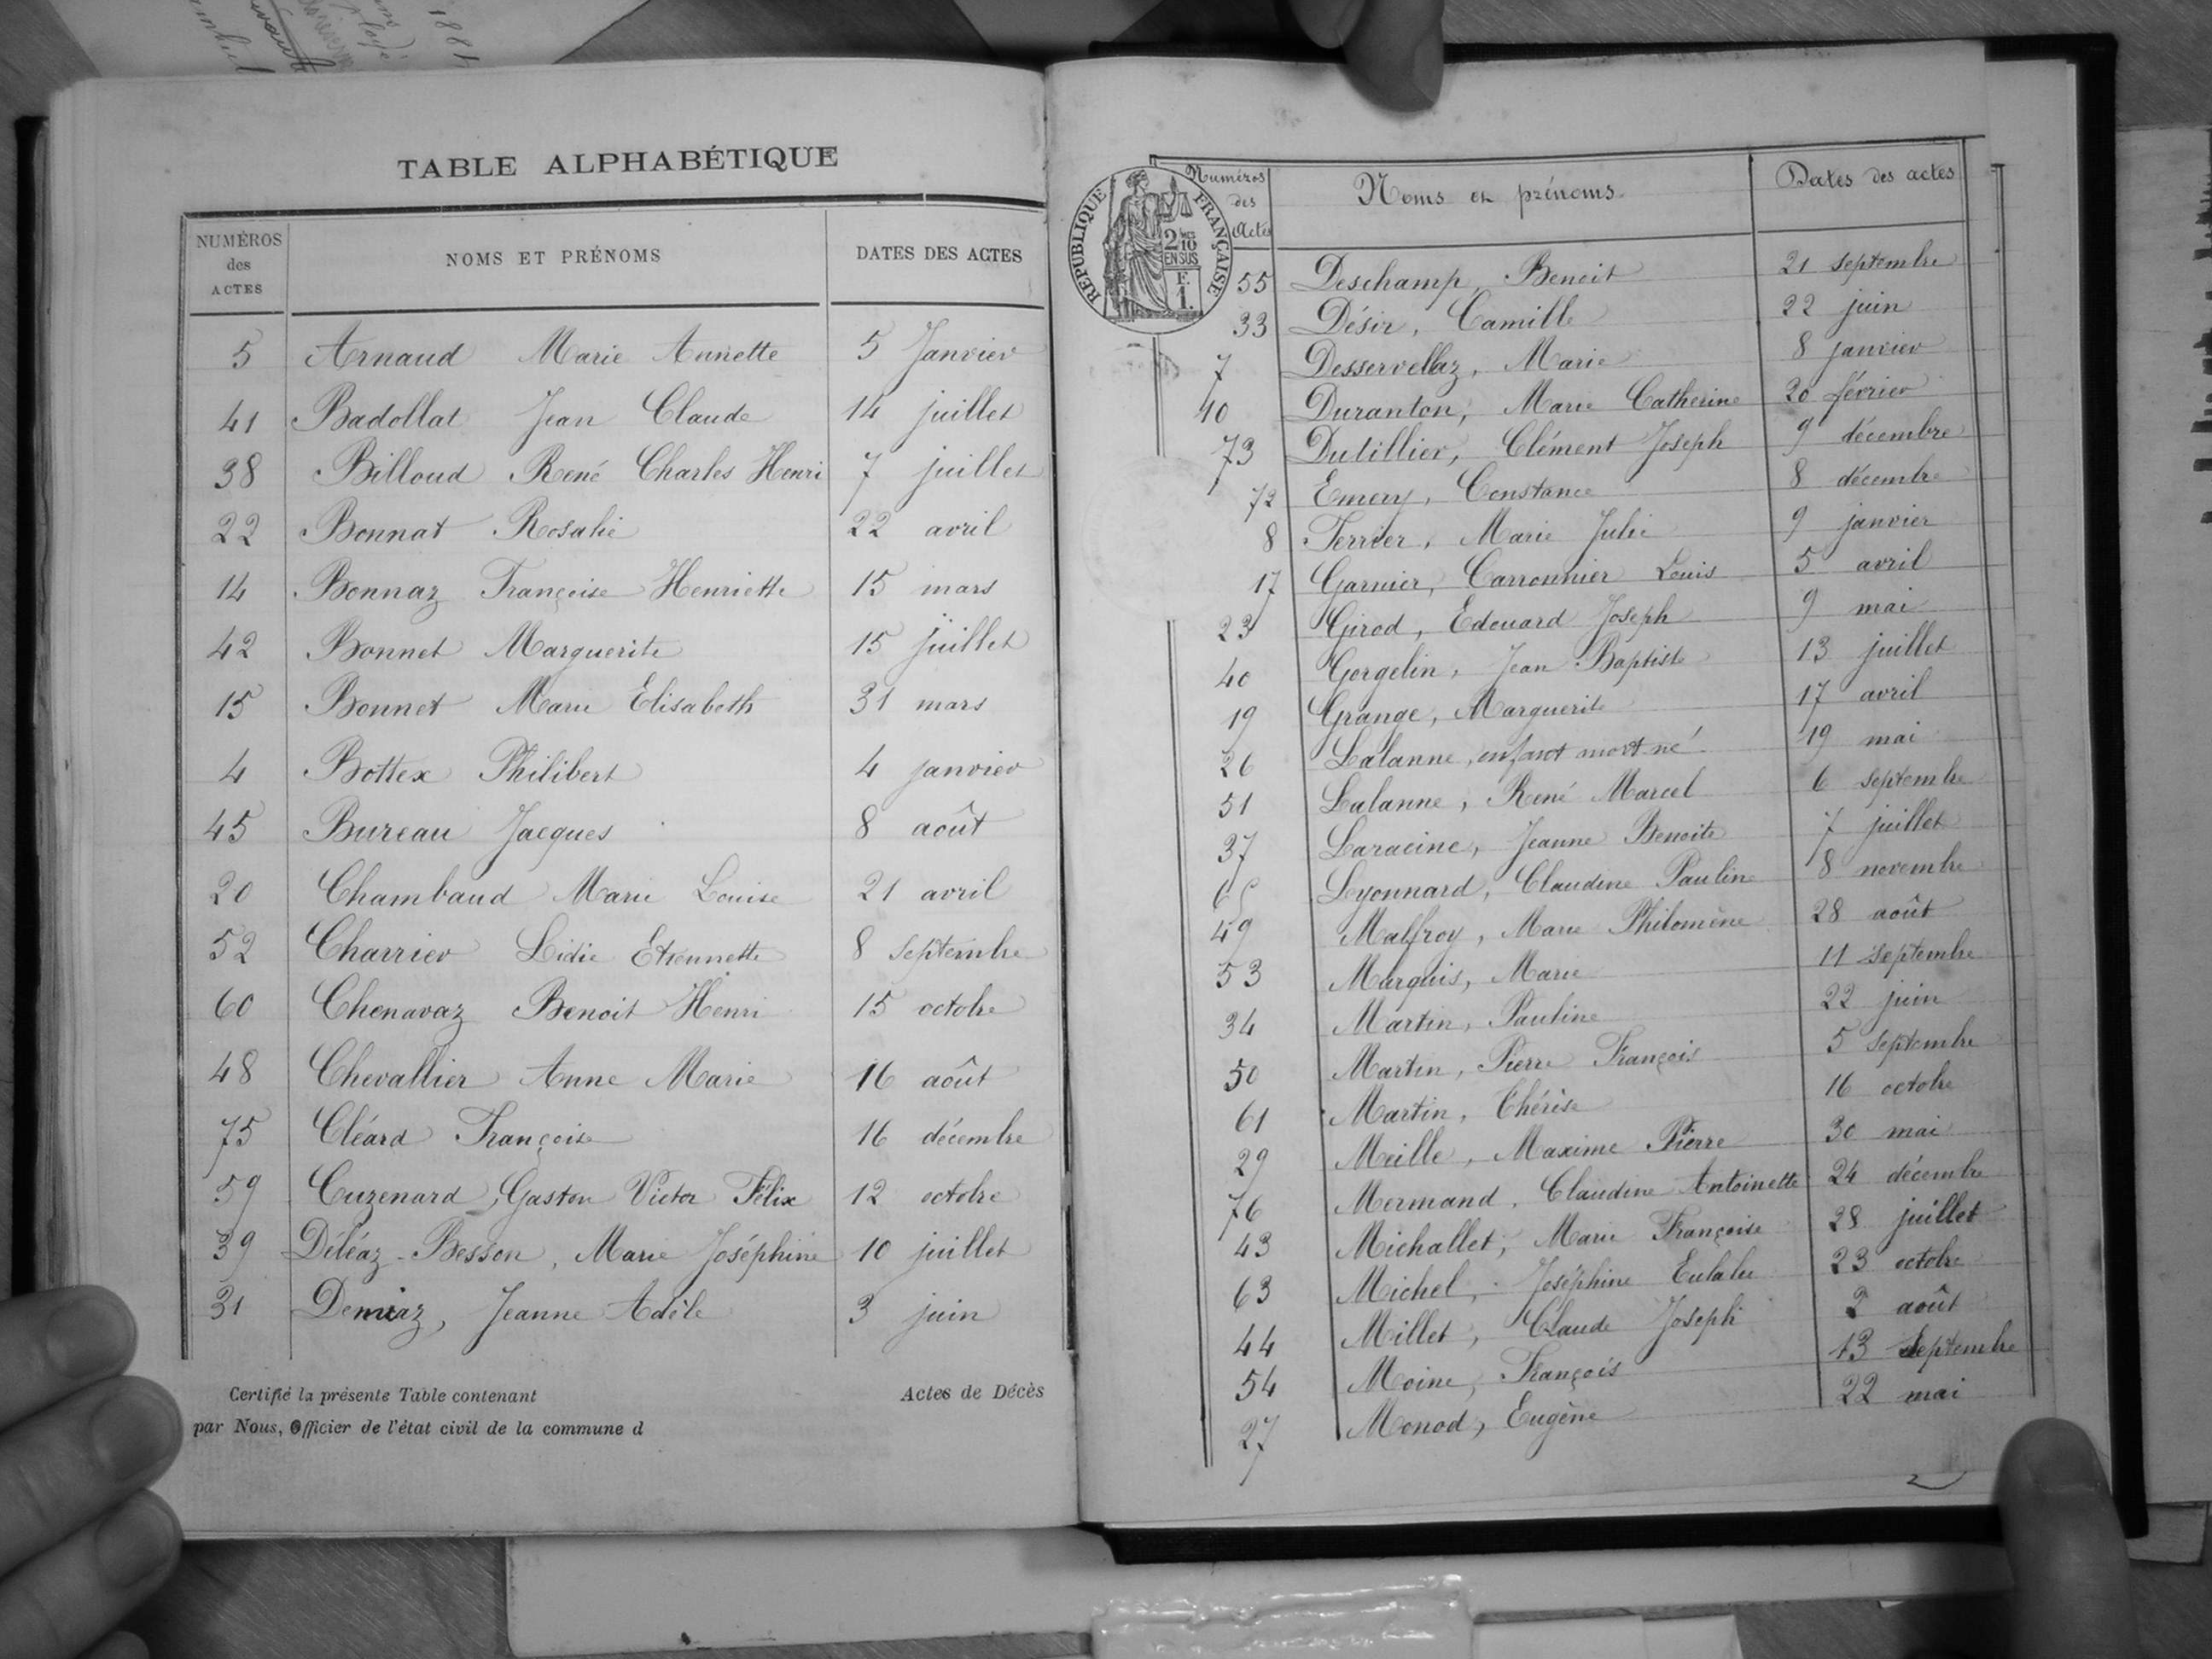 1881
TABLE ALPHABÉTIQUE
NUMÉROS des ACTES NOMS ET PRÉNOMS DATES DES ACTES
5 Arnaud Marie Annette 5 Janvier
41 Badollat Jean Claude 14 juillet
38 Billoud René Charles Henri 7 juillet
22 Bonnat Rosalie 22 avril
14 Bonnaz Françoise Henriette 15 mars
42 Bonnet Marguerite 15 juillet
15 Bonnet Marie Elisabeth 31 mars
4 Bottex Philibert 4 janvier
45 Bureau Jacques 8 août
20 Chambaud Marie Louise 21 avril
52 Charrier Lidie Etiennette 8 Septembre
60 Chenavaz Benoit Henri 15 octobre
48 Chevallier Anne Marie 16 août
75 Cléard Françoise 16 décembre
59 Cuzenard, Gaston Victor Félix 12 octobre
39 Déléaz-Besson, Marie Joséphine 10 juillet
31 Demiaz, Jeanne Adèle 3 juin
Certifié la présente Table contenant Actes de Décès
par Nous, Officier de l'état civil de la commune d
RÉPUBLIQUE FRANÇAISE
2/10 EN SUS
F. 1.
Numéros des Actes Noms et prénoms Dates des actes
55 Deschamp, Benoit 21 septembre
33 Désir, Camille 22 juin
7 Desservellaz, Marie 8 janvier
10 Duranton, Marie Catherine 20 février
73 Dutillier, Clément Joseph 9 décembre
72 Emery, Constance 8 décembre
8 Ferrier, Marie Julie 9 janvier
17 Garnier, Carronnier Louis 5 avril
23 Girod, Edouard Joseph 9 mai
40 Gorgelin, Jean Baptiste 13 juillet
19 Grange, Marguerite 17 avril
26 Lalanne, enfant mort né 19 mai
51 Lalanne, René Marcel 6 septembre
37 Laracine, Jeanne Benoite 7 juillet
65 Lyonnard, Claudine Pauline 8 novembre
49 Malfroy, Marie Philomène 28 août
53 Marquis, Marie 11 septembre
34 Martin, Pauline 22 juin
50 Martin, Pierre François 5 Septembre
61 Martin, Thérèse 16 octobre
29 Meille, Maxime Pierre 30 mai
76 Mermand, Claudine Antoinette 24 décembre
43 Michallet, Marie Françoise 28 juillet
63 Michel, Joséphine Eulalie 23 octobre
44 Millet, Claude Joseph 2 août
54 Moine, François 13 Septembre
27 Monod, Eugène 22 mai